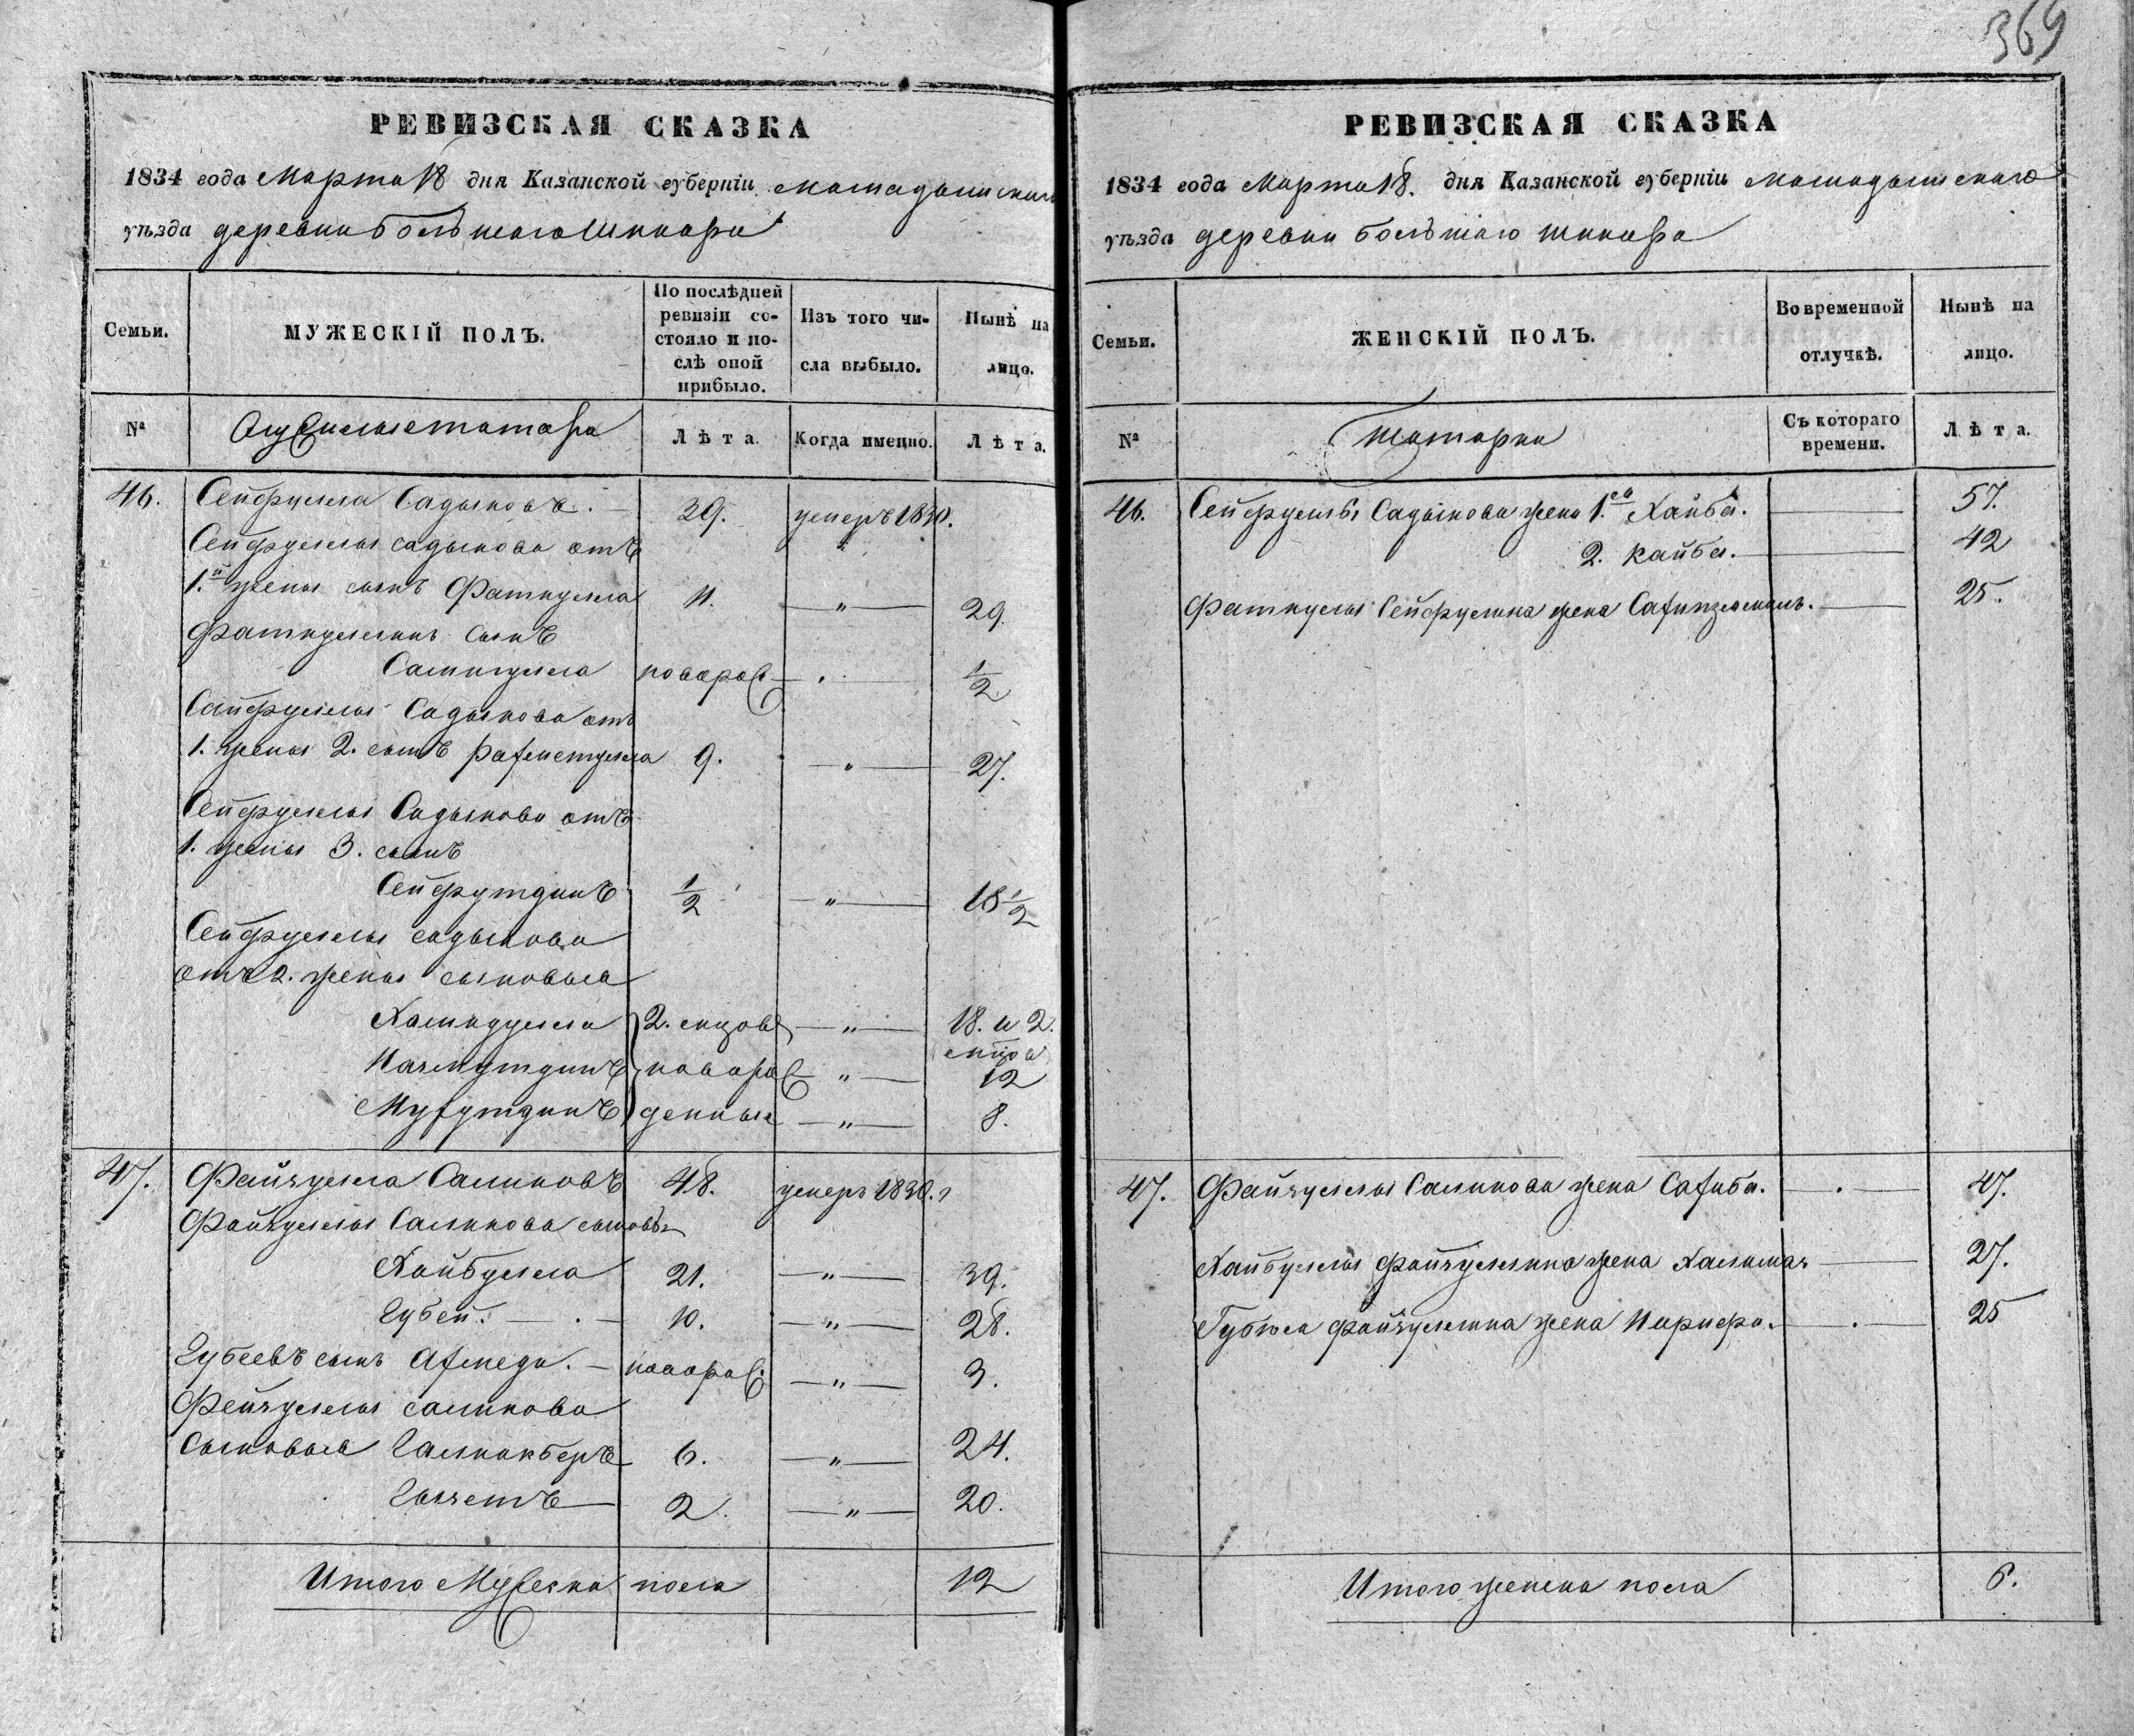 369
РЕВИЗСКАЯ СКАЗКА
1834 года Марта 18 дня Казанской губерніи мамадышскаго
уѣзда деревни большаго Шинара
Семьи.
МУЖЕСКІЙ ПОЛЪ.
По послѣдней ревизіи состояло и послѣ оной прибыло.
Изъ того числа выбыло.
Нынѣ на лицо.
№
Служилые татара
Лѣта.
Когда именно.
Лѣта.
46. Сейфулла Садыковъ. 39. умеръ 1830.
Сейфуллы садыкова отъ
1.й жены сынъ Фаткулла 11. — " — 29.
Фаткуллинъ сынъ
Самигулла новорож — . — 1/2
Сайфуллы Садыкова отъ
1. жены 2. сынъ Рахметулла 9. — " — 27.
Сейфуллы Садыкова отъ
1. жены 3. сынъ
Сейфутдинъ 1/2 — " — 18 1/2
Сейфуллы садыкова
отъ 2. жены сыновья
Хамидулла 2. — " — 18. и 2.
Назмутдинъ новорож — " — 12
Мухутдинъ денные — " — 8.
47. Файзулла Салиховъ 48. умеръ 1830. г
Файзуллы Салихова сыновья
Хайбулла 21. — " — 39.
Губей. — . — 10. — " — 28.
Губеевъ сынъ Ахмеди. — новорож: — " — 3.
Фейзуллы салихова
сыновья Галиакберъ 6. — " — 24.
Гиззетъ 2. — " — 20.
Итого Мужеска пола 12
РЕВИЗСКАЯ СКАЗКА
1834 года Марта 18. дня Казанской губерніи мамадышскаго
уѣзда деревни большаго шинара
Семьи.
ЖЕНСКІЙ ПОЛЪ.
Во временной отлучкѣ.
Нынѣ на лицо.
№
татарки
Съ котораго времени.
Лѣта.
46. Сейфуллы Садыкова жена 1.ая Хайба. — 57.
2. Кайба. — 42
Фаткуллы Сейфулина жена — 25.
47. Файзуллы Салихова жена Сахиба. — . — 47.
Хайбуллы файзуллина жена Халимах — 27.
Губея файзуллина жена — . — 25
Итого женска пола 6.